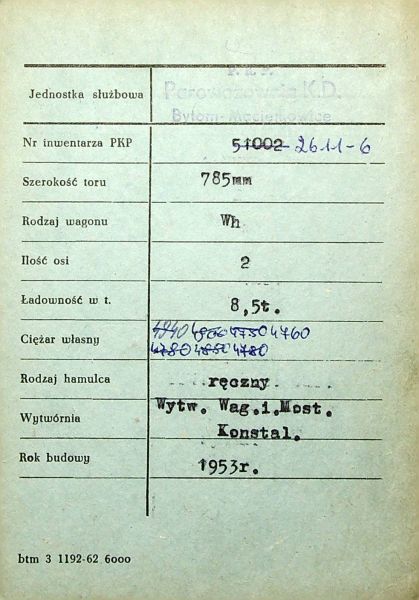 P.K.P.
Jednostka służbowa Parowozownia K.D.
Bytom-Maciejkowice
Nr inwentarza PKP 51002 2611-6
Szerokość toru 785mm
Rodzaj wagonu Wh
Ilość osi 2
Ładowność w t. 8,5t.
Ciężar własny 4940 4900 4750 4760
4780 4850 4780
Rodzaj hamulca ręczny
Wytwórnia Wytw. Wag.i.Most.
Konstal.
Rok budowy 1953r.
btm 3 1192-62 6000